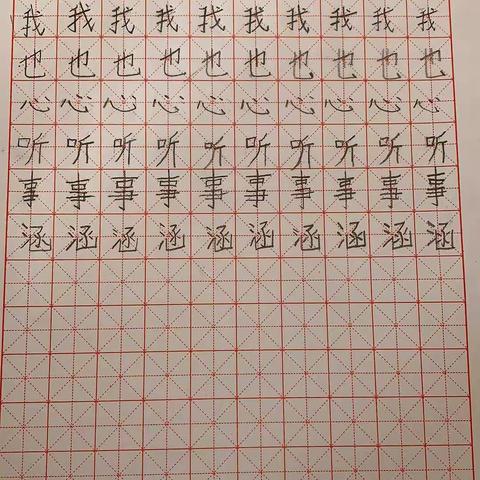 我我我我我我我我我我
也也也也也也也也也也
心心心心心心心心心心
听听听听听听听听听听
事事事事事事事事事事
涵涵涵涵涵涵涵涵涵涵